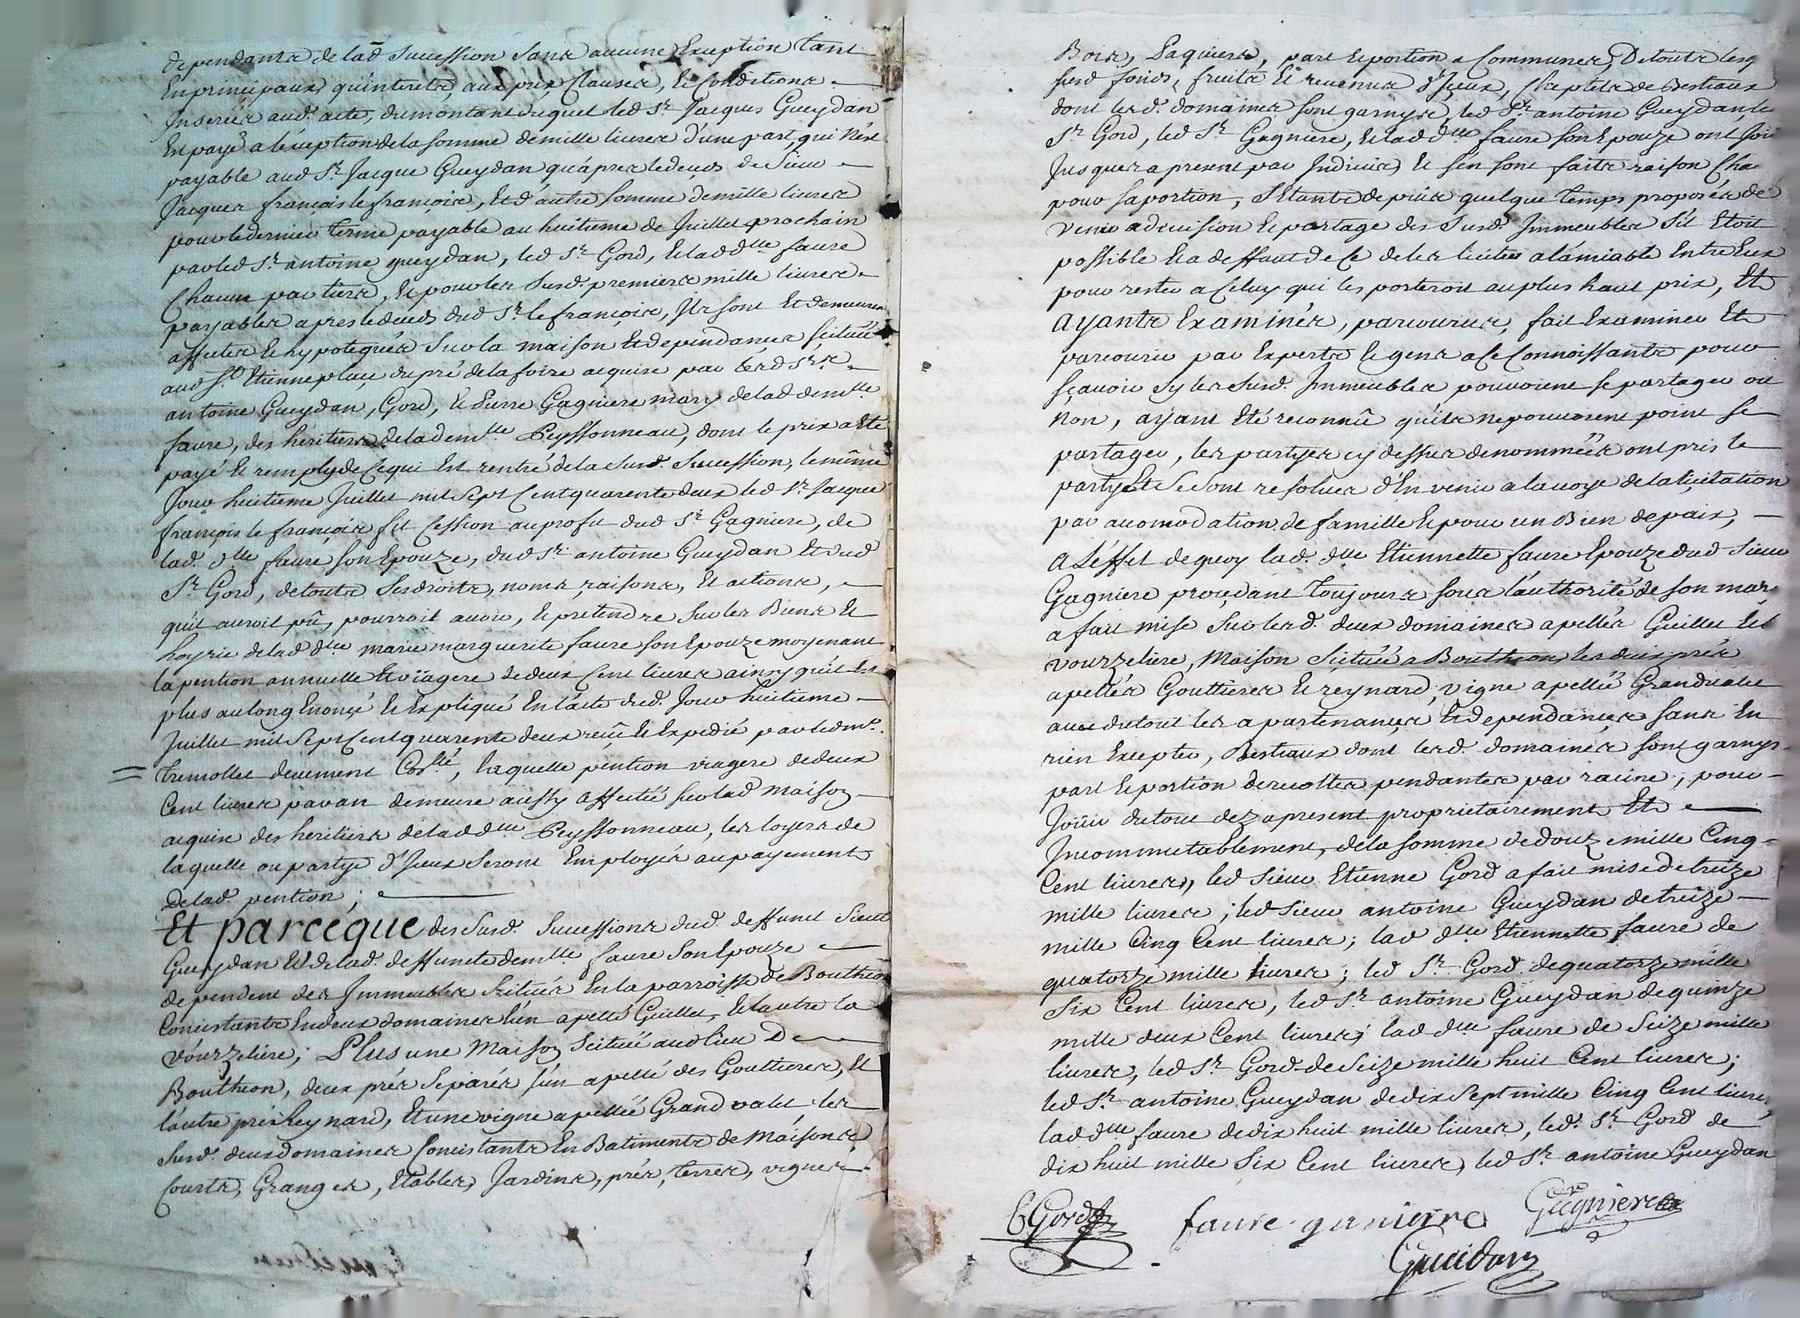 dependants de lad succession sans aucune Exception tant
En principaux, qu'interets, aux prix Clauses, et Conditions
Inserées aud. acte, du montant duquel led Sr. Jacques Gueydan
Est payé a l'exeption de la somme de mille livres d'une part, qui n'est
payable aud Sr. Jacque Gueydan qu'apres le deceds de Sieur
Jacques françois le françois, Et d'autre somme de mille livres
pour le dernier terme payable au huitieme de Juillet prochain
par led Sr. antoine gueydan, led Sr. Gord, et lad dlle faure
Chacun par tiers, et pour les susd. premieres mille livres
payables apres le deceds dud Sr. le françois, Ils sont Et demeurent
affectés et hypotequés sur la maison Et dependances scituée
aud St. Etienne place du pré de la foire acquise par lesd Srs.
antoine Gueydan, Gord, et Pierre Gagniere mary de lad demlle
faure, des heritiers de la demlle Peyssonneau, dont le prix a Eté
payé et remply de ce qui Est rentré de la susd. succession, le même
Jour huitieme Juillet mil sept Cent quarente deux led Sr. Jacque
françois le françois fit Cession au profit dud Sr. Gagniere, de
lad. dlle faure son Epouze, dud Sr. antoine Gueydan Et dud
Sr. Gord, de touts ses droits, noms, raisons, Et actions,
qu'il auroit pû, pourroit avoir, et pretendre sur les Biens et
hoyrie de lad dlle marie marguerite faure son Epouze moyenant
la pention annuelle Et viagere de deux Cent livres ainsy qu'il Est
plus au long Enoncé et Expliqué En l'acte dud. Jour huitieme
Juillet mil sept Cent quarente deux reçû et Expedié par led me.
tremollet deuement Coollé, laquelle pention viagere de deux
Cent livres par an demeure aussy affectée sur lad maison
acquise des heritiers de lad dlle Peyssonneau, les loyers de
laquelle ou partye d'Iceux seront Employés au payement
de lad pention;
Et parceque des susd. successions dud. deffunct Sieur
Gueydan Et de lad. deffuncte demlle faure son Epouze
dependent des Immeubles scitués En la parroisse de Boutheon
Consistants En deux domaines l'un apellé Guillet, et l'autre la
vourzeliere; Plus une Maison scituée aud lieu De
Boutheon, deux prés separés l'un apellé des Gouttieres, et
l'autre pré Reynard, Et une vigne apellée Grand valet les
susd. deux domaines Consistants En Batiments de Maisons
Courts, Granges, Etables, Jardins, prés, terres, vignes
Bois, Paquiers, part et portion es Communes, De touts lesq
susd fonds, fruits et revenus d'Iceux, Cheptels de Bestiaux
dont lesd. domaines sont garnys, led Sr. antoine Gueydan, le
Sr. Gord, led Sr. Gagniere, et lad dlle faure son Epouze ont Joüi
Jusques a present par Indivis, Et s'en sont faits raison Cha
pour sa portion, s'Etants depuis quelque temps proposés de
venir a division et partage des susd. Immeubles s'il Etoit
possible Et a deffaut de ce de les liciter a l'amiable Entre Eux
pour rester a Celuy qui les porteroit au plus haut prix, Et
ayants Examinés, parcourus, fait Examiner Et
parcourir par Experts et gens a ce Connoissants pour
sçavoir sy les susd. Immeubles pouvoient se partager ou
non, ayant Eté reconnû qu'ils ne pouvoient point se
partager, les partyes cy dessus denommées ont pris le
party Et se sont resolues d'En venir a la voye de la licitation
par acomodation de famille et pour un Bien de paix,
A l'effet de quoy lad. dlle Etiennette faure Epouze dud Sieur
Gagniere procedant toujours sous l'authorité de son mary
a fait mise sur lesd. deux domaines apellés Guillet et
vourzeliere, Maison scituée a Boutheon, les deux prés
apellés Gouttieres et reynard, vigne apellée Grandvalet
avec du tout les apartenances Et dependances sans En
rien Excepter, Bestiaux dont lesd. domaines sont garnys
part et portion de recoltes pendantes par racine, pour
Joüir du tout dez apresent proprietairement Et
Incommutablement, de la somme de douze mille Cinq
Cent livres, led Sieur Etienne Gord a fait mise de treize
mille livres; led Sieur antoine Gueydan de treize
mille Cinq Cent livres; lad dlle Etiennette faure de
quatorze mille livres; led Sr. Gord de quatorze mille
Six Cent livres, led Sr. antoine Gueydan de quinze
mille deux Cent livres; lad dlle faure de seize mille
livres, led Sr. Gord de Seize mille huit Cent livres;
led Sr. antoine Gueydan de dix sept mille Cinq Cent livres,
lad dlle faure de dix huit mille livres, led. Sr. Gord de
dix huit mille Six Cent livres, led Sr. antoine Gueydan
E Gord faure ganierre Gagniere
Gueidan